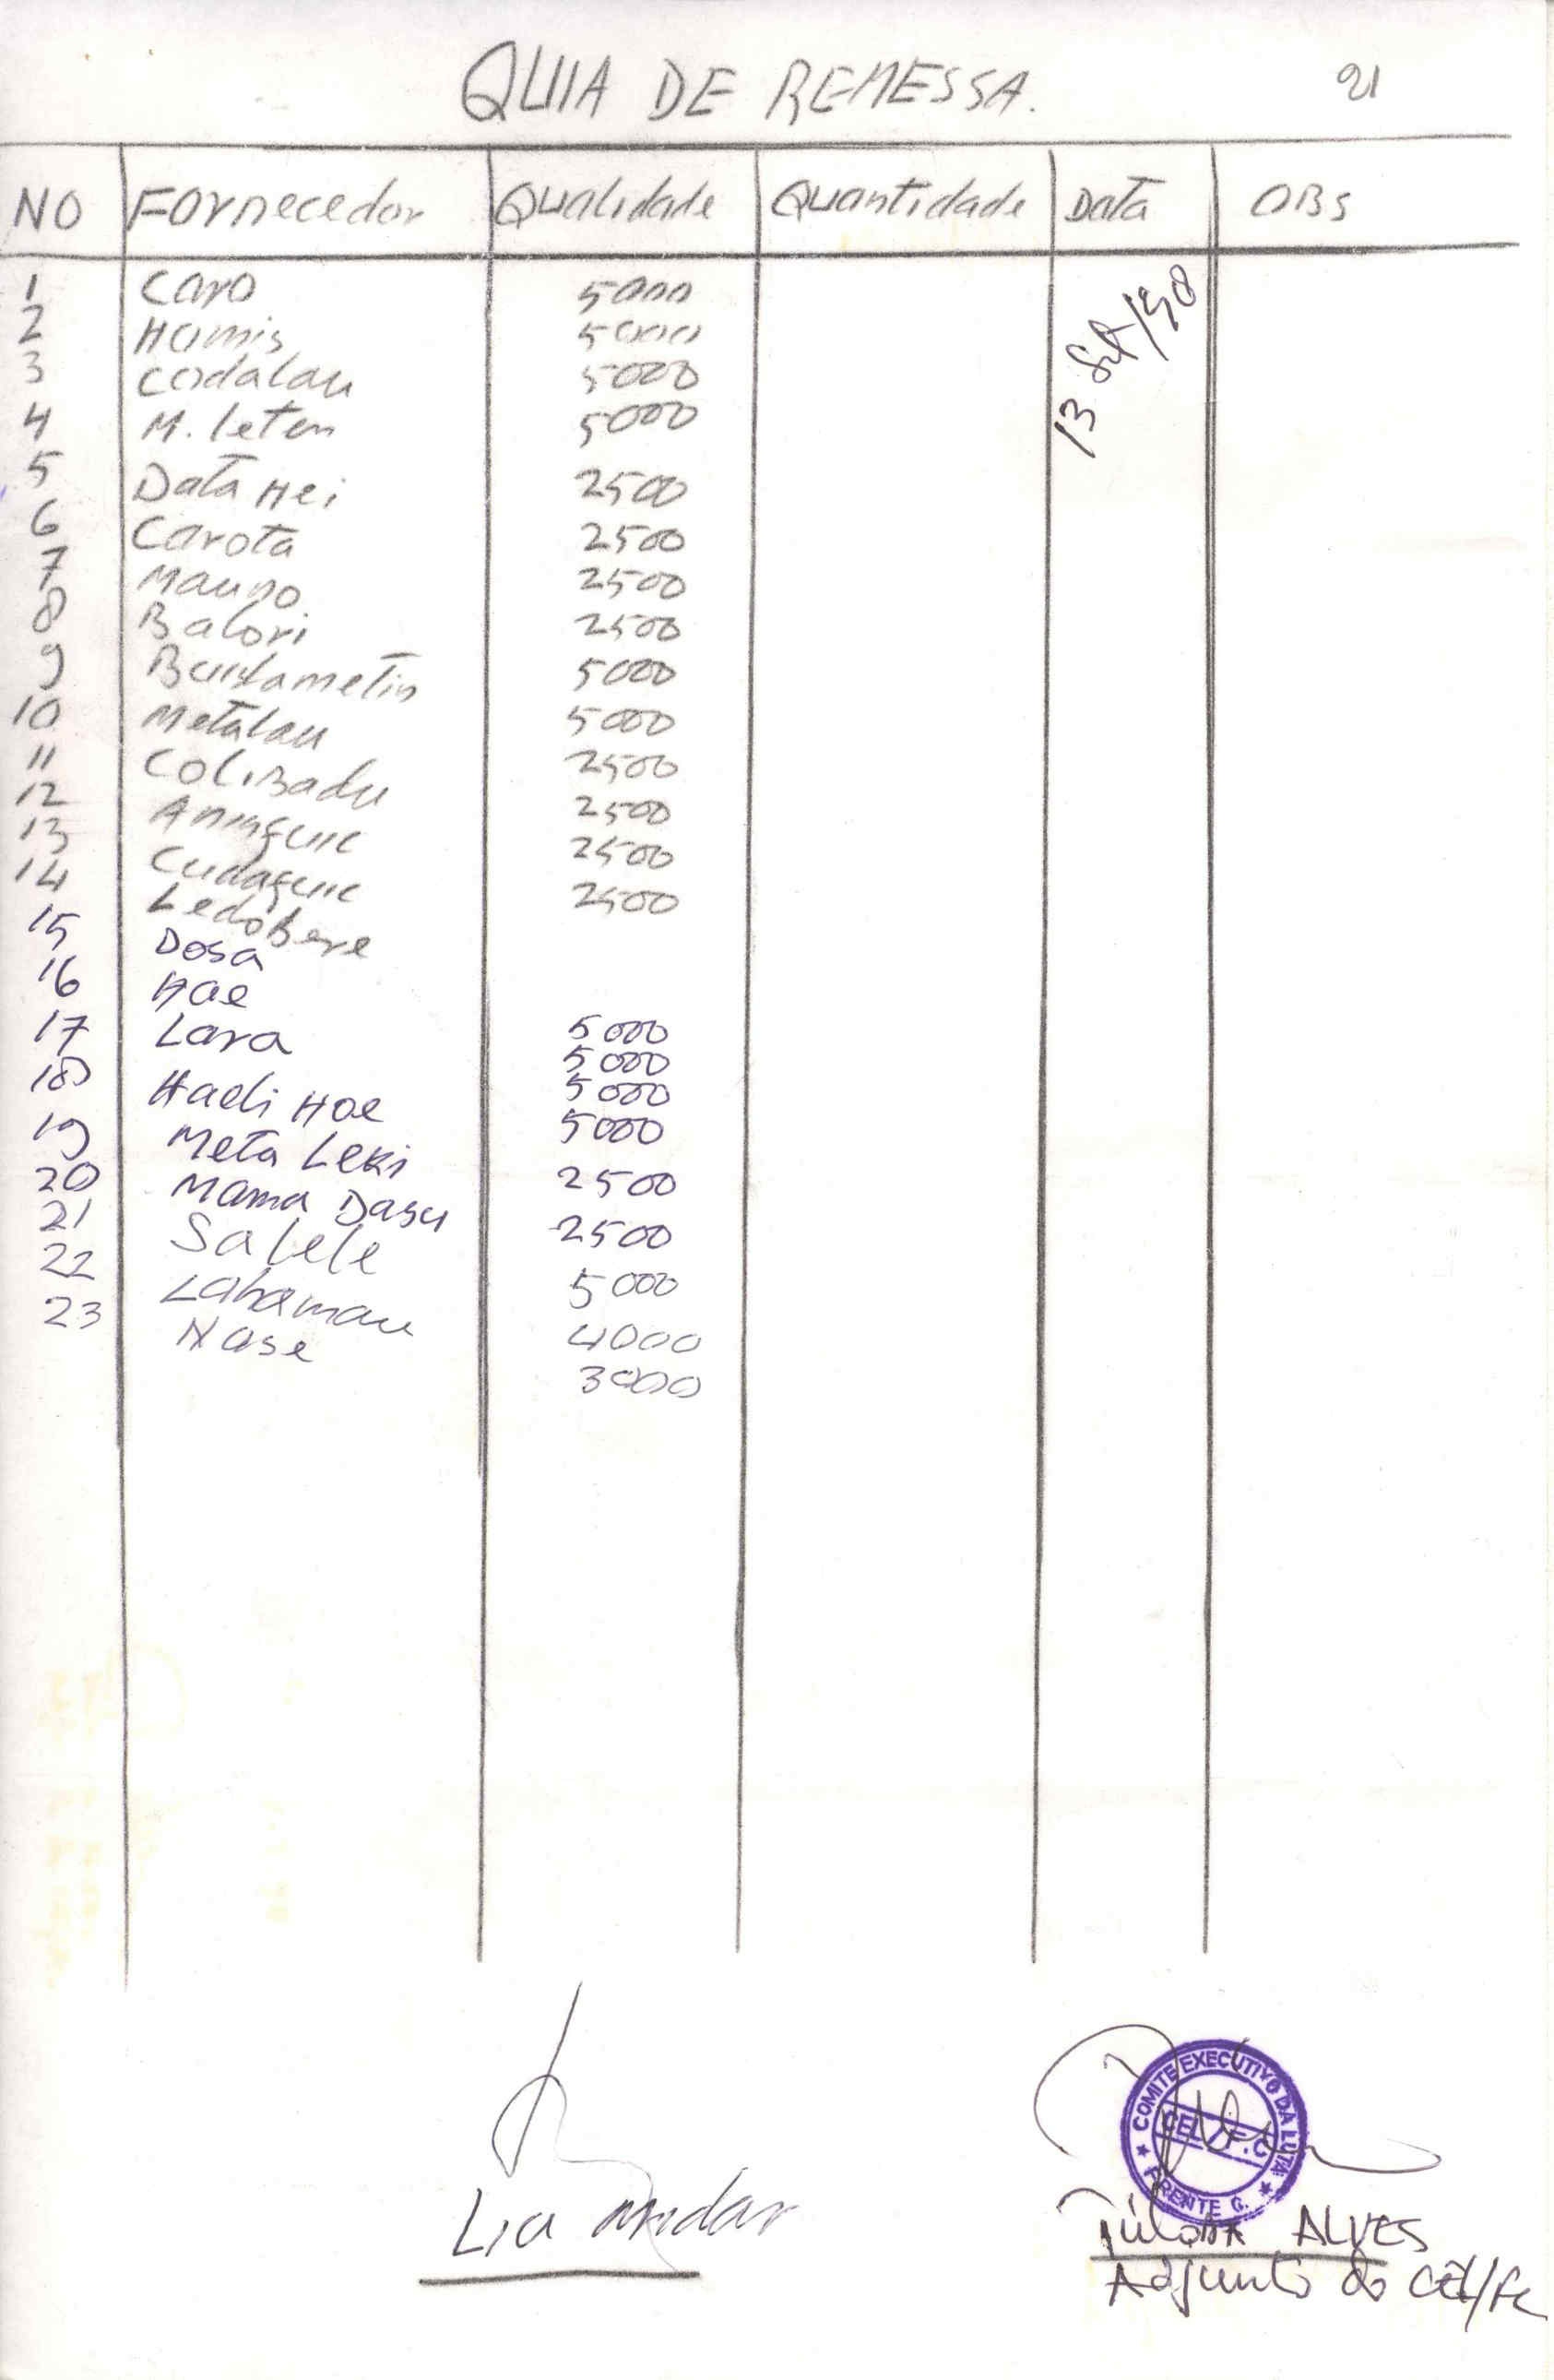 QUIA DE REMESSA. 21
NO Fornecedor Qualidade Quantidade Data OBS
1 Caro 5000 13 Set/90
2 Hamis 5000
3 Codalau 5000
4 M. leten 5000
5 Data Hei 2500
6 Carota 2500
7 Mauno 2500
8 Balori 2500
9 5000
10 Metalau 5000
11 Colibadu 2500
12 2500
13 2500
14 Ledobere 2500
15 Dosa
16 Hae
17 Lara 5000
5000
18 Haeli Hae 5000
19 Meta Leki 5000
20 Mama Dasu 2500
21 Salele 2500
22 Lahamau 5000
23 Nase 4000
3000
COMITE EXECUTIVO DA LUTA
CEL/F.C
FRENTE C.
ALVES
Adjunto do CEL/FC